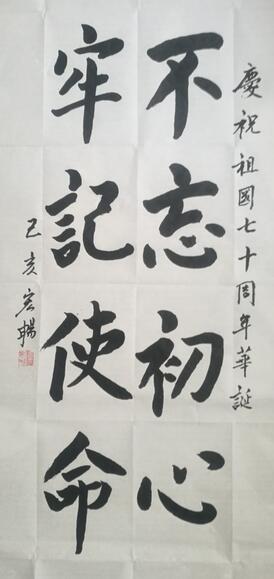 慶祝祖國七十周年華誕
不忘初心
牢記使命
己亥宏暢